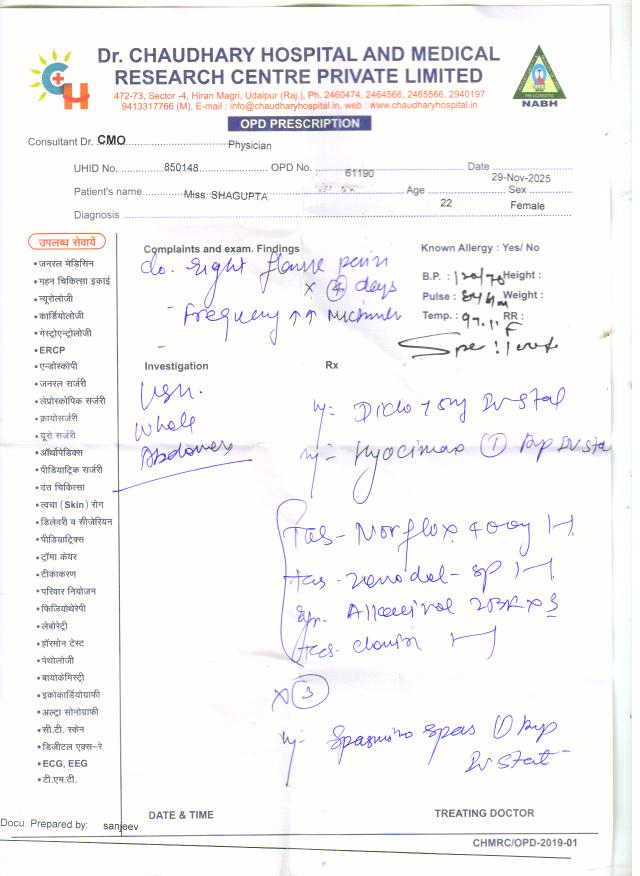 Dr. CHAUDHARY HOSPITAL AND MEDICAL
RESEARCH CENTRE PRIVATE LIMITED
472-73, Sector -4, Hiran Magri, Udaipur (Raj.), Ph. 2460474, 2464566, 2465566, 2940197
9413317766 (M), E-mail : info@chaudharyhospital.in, web : www.chaudharyhospital.in
NABH
OPD PRESCRIPTION
Consultant Dr. CMO Physician
UHID No. 850148 OPD No. 61190 Date 29-Nov-2025
Patient's name Miss. SHAGUPTA Age 22 Sex Female
Diagnosis
उपलब्ध सेवायें
• जनरल मेडिसिन
• गहन चिकित्सा इकाई
• न्यूरोलॉजी
• कार्डियोलॉजी
• गेस्ट्रोएन्ट्रोलॉजी
• ERCP
• एन्डोस्कोपी
• जनरल सर्जरी
• लेप्रोस्कोपिक सर्जरी
• क्रायोसर्जरी
• यूरो सर्जरी
• ऑर्थोपेडिक्स
• पीडियाट्रिक सर्जरी
• दंत चिकित्सा
• त्वचा (Skin) रोग
• डिलेवरी व सीजेरियन
• पीडियाट्रिक्स
• ट्रॉमा केयर
• टीकाकरण
• परिवार नियोजन
• फिजियोथेरेपी
• लेबोरेट्री
• हॉरमोन टेस्ट
• पेथोलॉजी
• बायोकेमिस्ट्री
• इकोकार्डियोग्राफी
• अल्ट्रा सोनोग्राफी
• सी.टी. स्केन
• डिजीटल एक्स-रे
• ECG, EEG
• टी.एम.टी.
Complaints and exam. Findings
c/o. right flank pain
x 4 days
- Frequency ↑↑
Known Allergy : Yes/ No
B.P. : 120/70 Height :
Pulse : 84/m Weight :
Temp. : 97.1 F RR :
Investigation
USG.
Whole
Abdomen
Rx
Diclo 75mg IV Stat
Hyocimax 1 Amp IV Sta
Tab- Norflox 400mg 1-1
Tab- Zerodol-SP 1-1
Syp. Alkacitral
Tab-
x 3
1 Amp
IV Stat
DATE & TIME
TREATING DOCTOR
Docu. Prepared by: sanjeev
CHMRC/OPD-2019-01